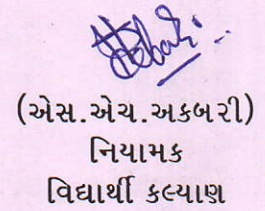 (એસ.એચ.અકબરી)
નિયામક
વિદ્યાર્થી કલ્યાણ